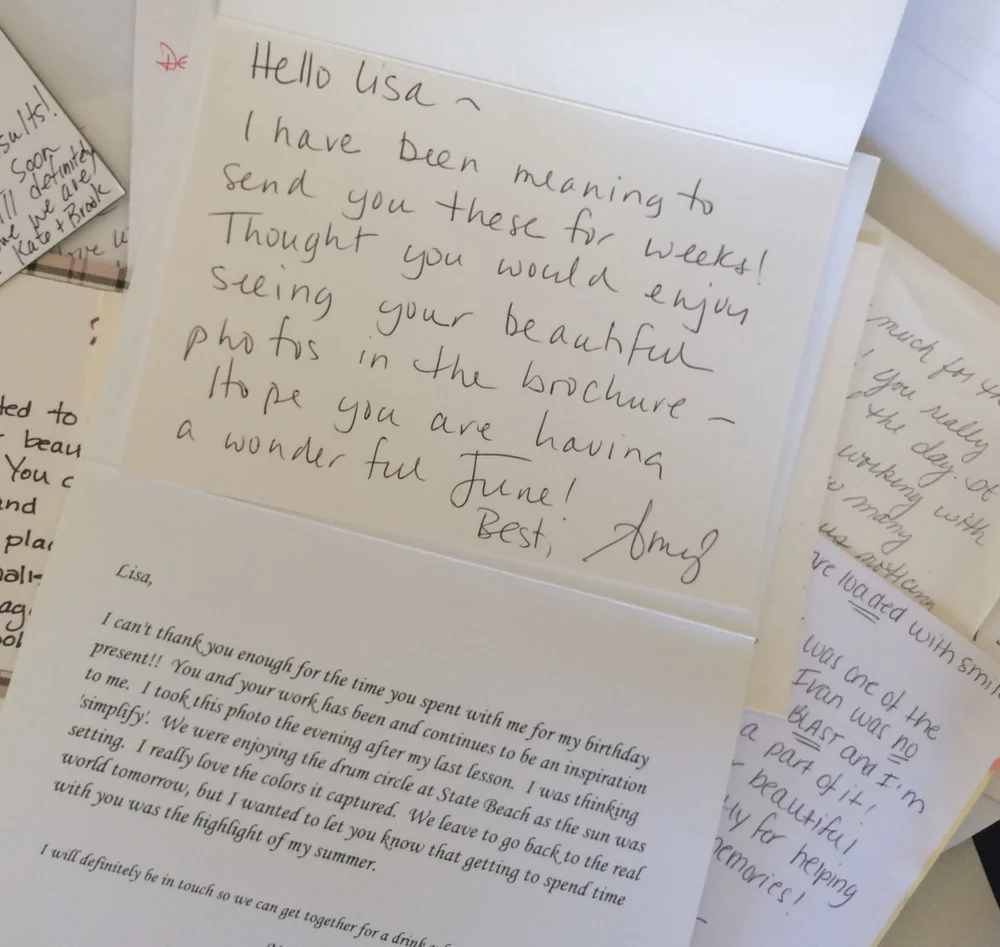 Hello Lisa ~
I have been meaning to
send you these for weeks!
Thought you would enjoy
seeing your beautiful
photos in the brochure –
Hope you are having
a wonderful June!
Best, Amy
Lisa,
I can't thank you enough for the time you spent with me for my birthday
present!! You and your work has been and continues to be an inspiration
to me. I took this photo the evening after my last lesson. I was thinking
'simplify'. We were enjoying the drum circle at State Beach as the sun was
setting. I really love the colors it captured. We leave to go back to the real
world tomorrow, but I wanted to let you know that getting to spend time
with you was the highlight of my summer.
I will definitely be in touch so we can get together for a drink
De
soon
definitely
we are!
Kate + Brook
ted to
beau
You c
and
plac
much for th
! You really
the day. Of
working with
many
us
are loaded with smil
was one of the
Ivan was no
BLAST and I'm
a part of it!
beautiful
for helping
memories!